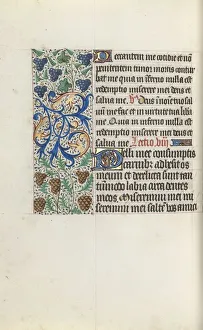 Peccantem me cotidie et nō
penitentem timor mortis contur
bat me quia in inferno nulla est
redemptio miserere mei deus et
salua me. Deus in noīe tuo sal
uū me fac et in uirtute tua libera
me. Quia in inferno nulla est
redemptio miserere mei deus et
salua me. Lectio
Pelli mee consumptis
carnib; adhesit os
meum et derelicta sunt tan
tūmodo labia circa dentes
meos Miseremini mei mi
seremini mei saltē vos amici